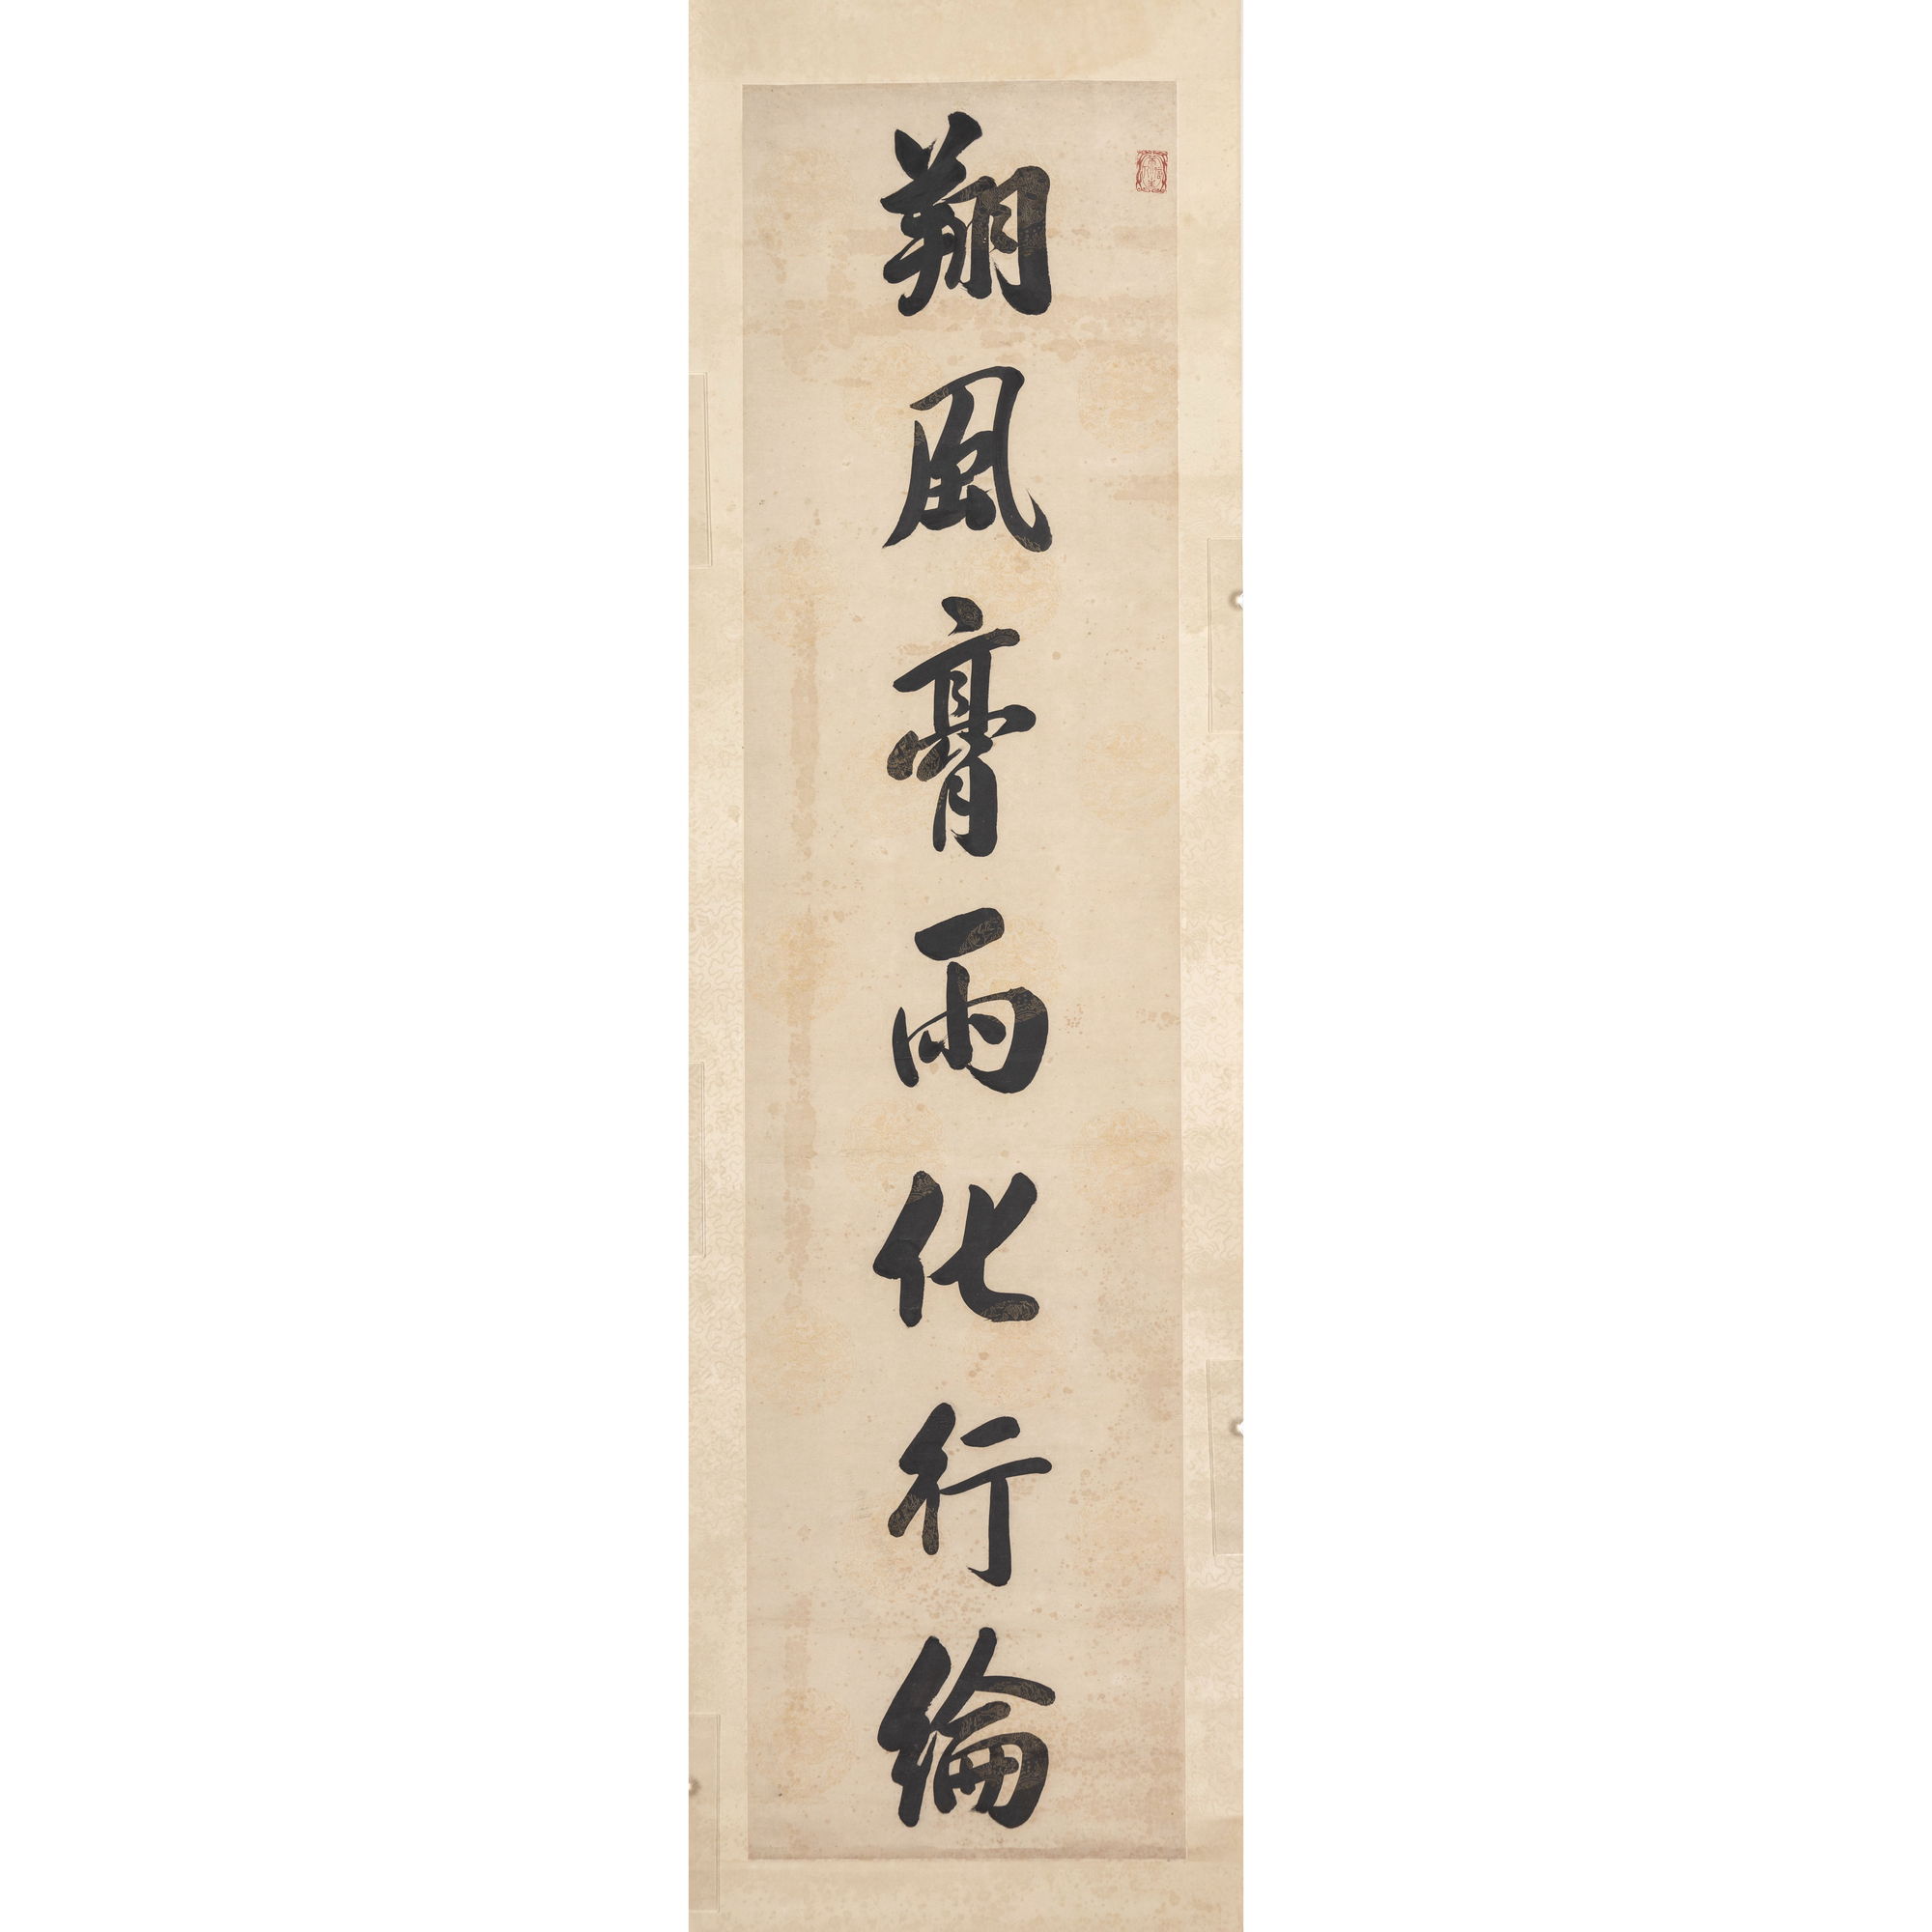 翔風膏雨化行綸